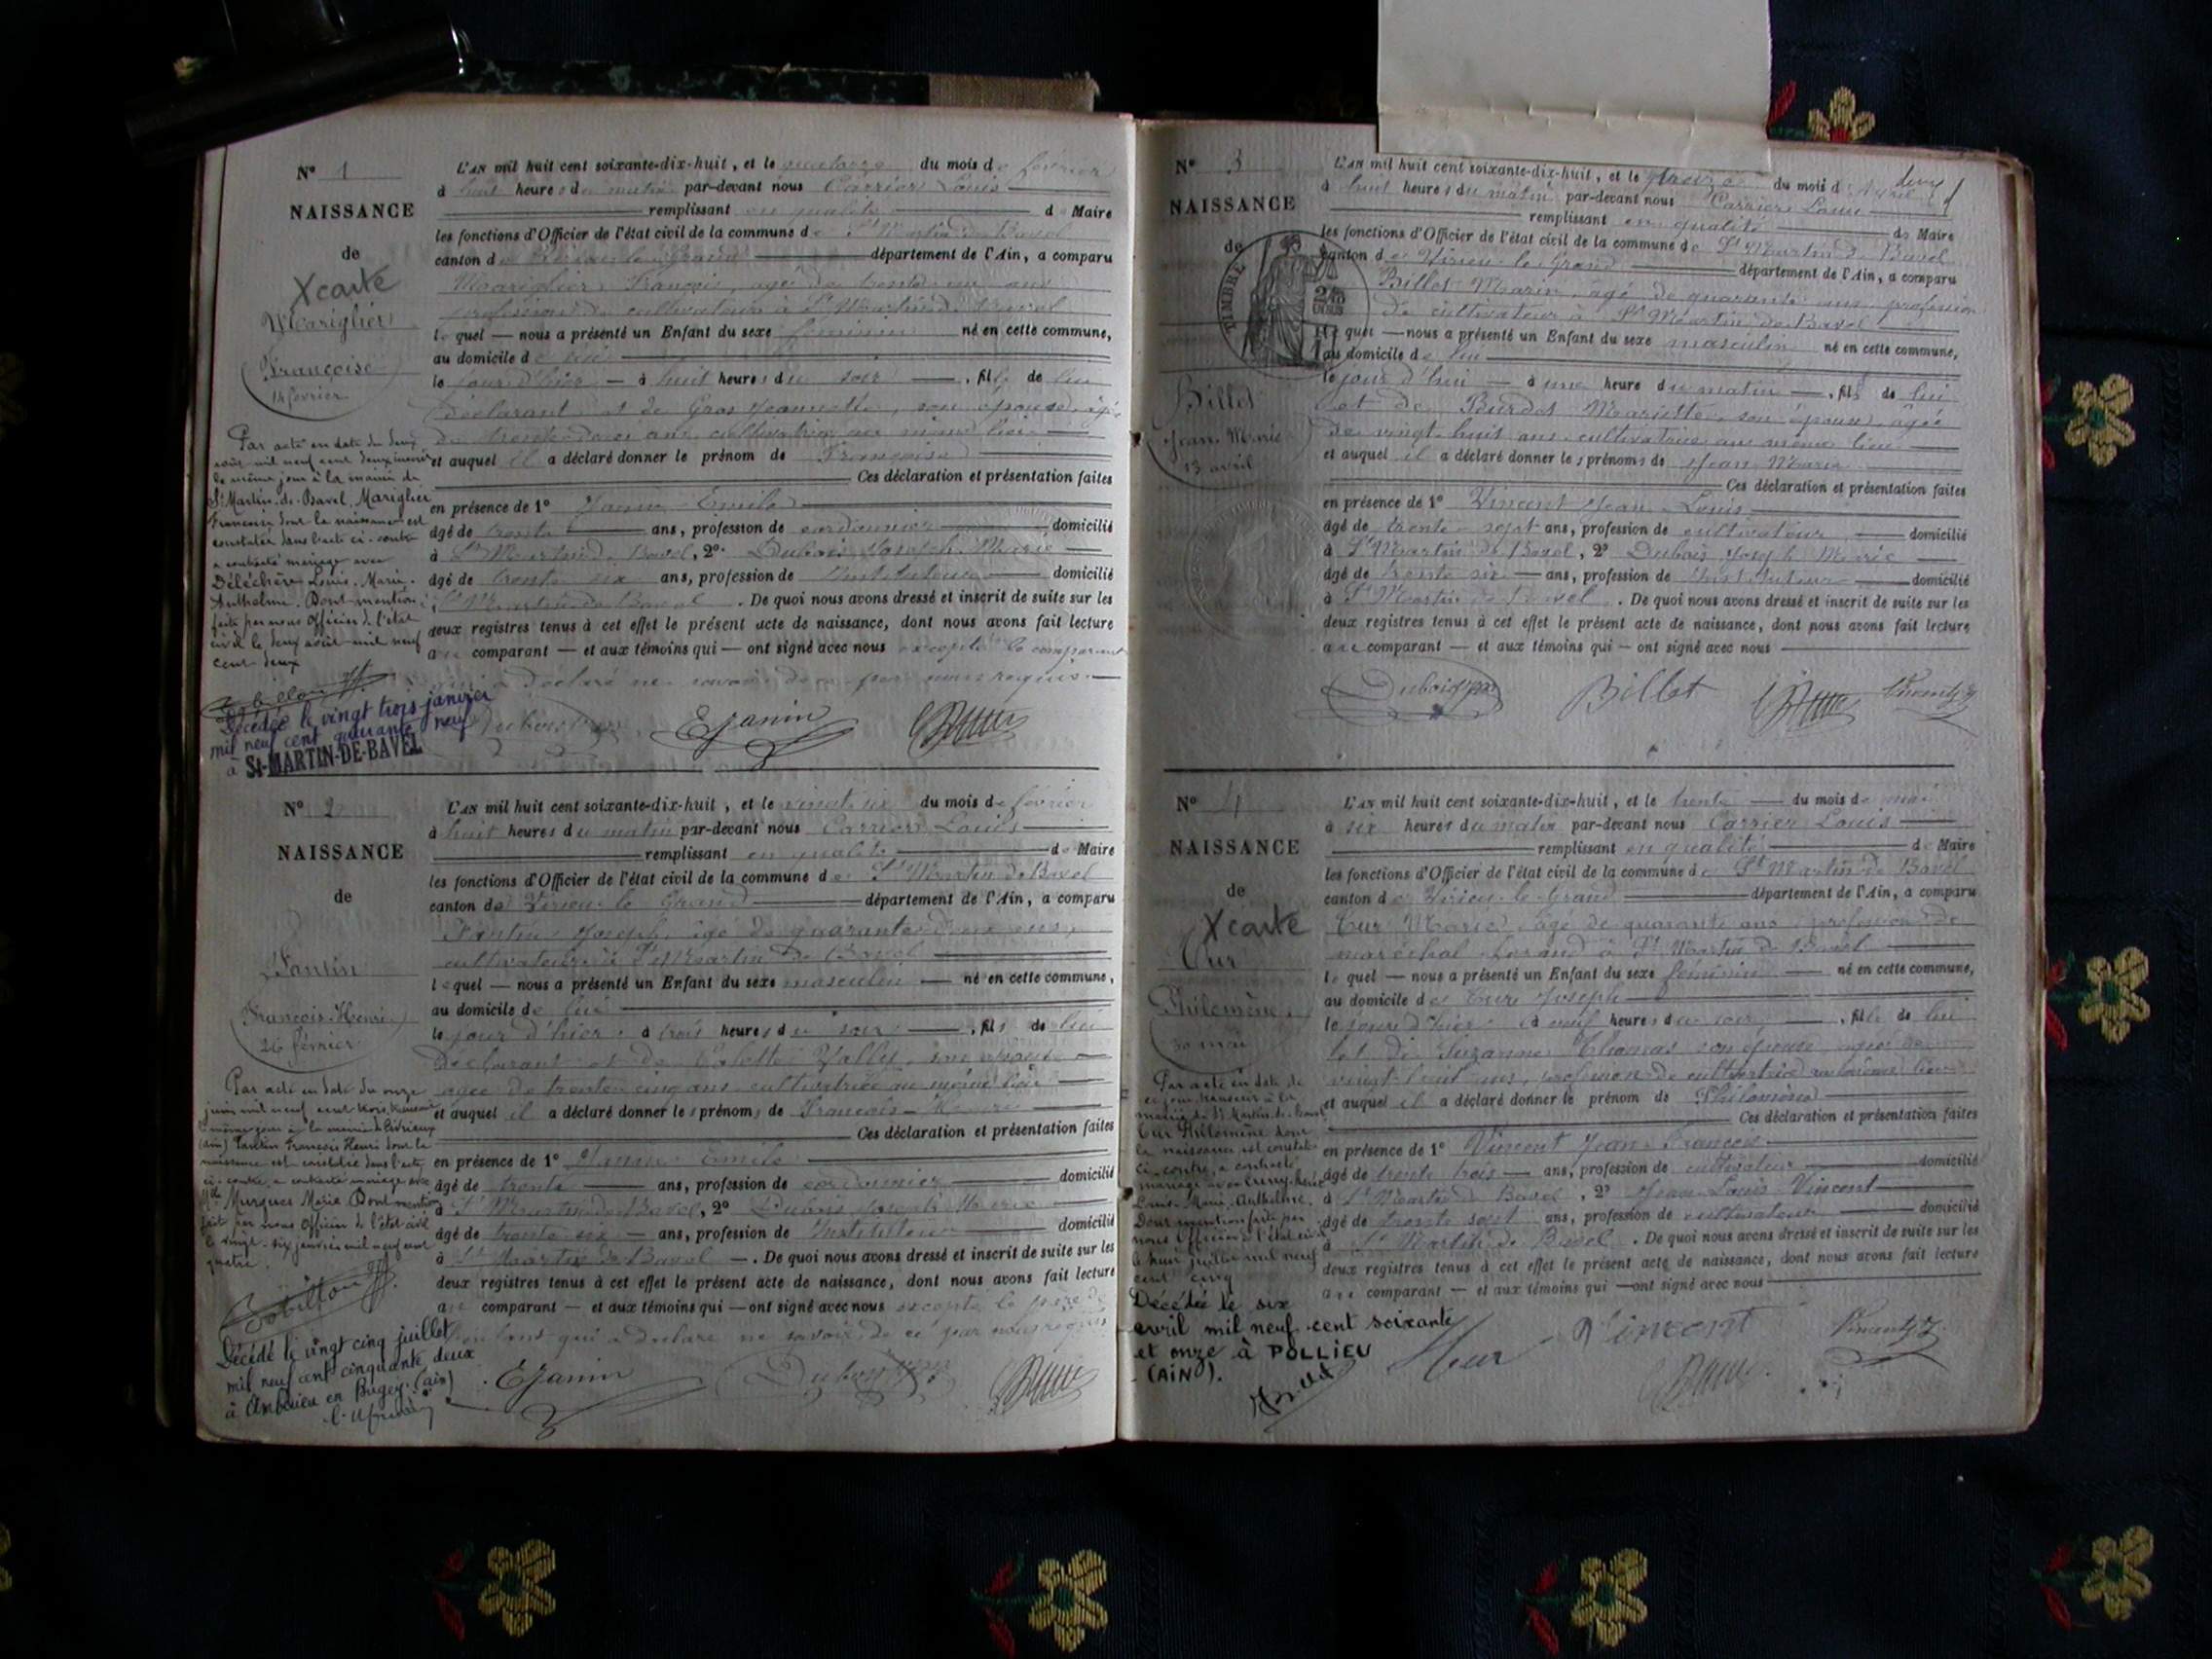 N° 1
NAISSANCE
de
X carte
Mariglier
Françoise
14 février
L'AN mil huit cent soixante-dix-huit, et le quatorze du mois de février
à huit heures du matin par-devant nous Carrier Louis
remplissant en qualité de Maire
les fonctions d'Officier de l'état civil de la commune de St Martin de Bavel
canton de Virieu le Grand département de l'Ain, a comparu
Mariglier François, âgé de trente un ans
profession de cultivateur à St Martin de Bavel
lequel — nous a présenté un Enfant du sexe féminin né en cette commune,
au domicile de lui
le jour d'hier — à huit heures du soir —, fille de lui
déclarant et de Gros Jeannette, son épouse, âgée
de trente ans cultivatrice au même lieu
et auquel il a déclaré donner le prénom de Françoise
Ces déclaration et présentation faites
en présence de 1° Janin Emile
âgé de trente ans, profession de cordonnier domicilié
à St Martin de Bavel, 2° Dubois Joseph Marie
âgé de trente six ans, profession de Instituteur domicilié
St Martin de Bavel. De quoi nous avons dressé et inscrit de suite sur les
deux registres tenus à cet effet le présent acte de naissance, dont nous avons fait lecture
au comparant — et aux témoins qui — ont signé avec nous excepté le comparant
qui a déclaré ne savoir de ce par nous requis
Dubois EJanin
Par acte en date du deux
août mil neuf cent deux inscrit
le même jour à la mairie de
St Martin-de-Bavel, Mariglier
Françoise dont la naissance est
constatée dans l'acte ci-contre
a contracté mariage avec
Déléchère Louis-Marie-
Anthelme. Dont mention
faite par nous Officier de l'état
civil le deux août mil neuf
cent deux
Décédée le vingt trois janvier
mil neuf cent quarante neuf
à St-MARTIN-DE-BAVEL
N° 2
NAISSANCE
de
Fantin
François-Henri
26 février
L'AN mil huit cent soixante-dix-huit, et le vingt six du mois de février
à huit heures du matin par-devant nous Carrier Louis
remplissant en qualité de Maire
les fonctions d'Officier de l'état civil de la commune de St Martin de Bavel
canton de Virieu le Grand département de l'Ain, a comparu
Fantin Joseph, âgé de quarante deux ans,
cultivateur à St Martin de Bavel
lequel — nous a présenté un Enfant du sexe masculin — né en cette commune,
au domicile de lui
le jour d'hier à trois heures du soir —, fils de lui
déclarant et de Colette son épouse
âgée de trente cinq ans cultivatrice au même lieu
et auquel il a déclaré donner les prénoms de François-Henri
Ces déclaration et présentation faites
en présence de 1° Janin Emile
âgé de trente ans, profession de cordonnier domicilié
à St Martin de Bavel, 2° Dubois Joseph Marie
âgé de trente six — ans, profession de Instituteur domicilié
à St Martin de Bavel —. De quoi nous avons dressé et inscrit de suite sur les
deux registres tenus à cet effet le présent acte de naissance, dont nous avons fait lecture
au comparant — et aux témoins qui — ont signé avec nous excepté le père de
l'enfant qui a déclaré ne savoir de ce par nous requis
EJanin Dubois
Par acte en date du onze
mil neuf cent trois
même jour à la mairie de
(Ain) Fantin François Henri dont la
naissance est constatée dans l'acte
ci-contre, a contracté mariage avec
Murgues Marie Dont mention
fait par nous Officier de l'état civil
le vingt-six janvier mil neuf cent
quatre.
Décédé le vingt cinq juillet
mil neuf cent cinquante deux
à Ambérieu en Bugey (ain)
N° 3
NAISSANCE
de
TIMBRE
Billet
Jean Marie
13 avril
L'AN mil huit cent soixante-dix-huit, et le treize du mois d'Avril
à huit heures du matin par-devant nous Carrier Louis
remplissant en qualité de Maire
les fonctions d'Officier de l'état civil de la commune de St Martin de Bavel
canton de Virieu le Grand département de l'Ain, a comparu
Billet Marin, âgé de quarante ans, profession
de cultivateur à St Martin de Bavel
lequel — nous a présenté un Enfant du sexe masculin né en cette commune,
au domicile de lui
le jour d'hui — à une heure du matin —, fils de lui
et de Burdet Mariette, son épouse, âgée
de vingt huit ans cultivatrice au même lieu
et auquel il a déclaré donner les prénoms de Jean Marie
Ces déclaration et présentation faites
en présence de 1° Vincent Jean Louis
âgé de trente sept ans, profession de cultivateur domicilié
à St Martin de Bavel, 2° Dubois Joseph Marie
âgé de trente six — ans, profession de Instituteur domicilié
à St Martin de Bavel. De quoi nous avons dressé et inscrit de suite sur les
deux registres tenus à cet effet le présent acte de naissance, dont nous avons fait lecture
au comparant — et aux témoins qui — ont signé avec nous
Dubois Billet Vincent
N° 4
NAISSANCE
de
X carte
Cur
Philomène
30 mai
L'AN mil huit cent soixante-dix-huit, et le trente — du mois de mai
à six heures du matin par-devant nous Carrier Louis
remplissant en qualité de Maire
les fonctions d'Officier de l'état civil de la commune de St Martin de Bavel
canton de Virieu le Grand département de l'Ain, a comparu
Cur Marie, âgé de quarante ans profession de
maréchal ferrand à St Martin de Bavel
lequel — nous a présenté un Enfant du sexe féminin — né en cette commune,
au domicile de Cur Joseph
le jour d'hier à neuf heures du soir —, fille de lui
et de Suzanne Thomas son épouse âgée de
vingt huit ans, profession de cultivatrice au même lieu
et auquel il a déclaré donner le prénom de Philomène
Ces déclaration et présentation faites
en présence de 1° Vincent Jean François
âgé de trente trois — ans, profession de cultivateur domicilié
à St Martin de Bavel, 2° Jean Louis Vincent
âgé de trente sept ans, profession de cultivateur domicilié
à St Martin de Bavel. De quoi nous avons dressé et inscrit de suite sur les
deux registres tenus à cet effet le présent acte de naissance, dont nous avons fait lecture
au comparant — et aux témoins qui — ont signé avec nous
Vincent
Par acte en date de
ce jour transcrit à la
mairie de St Martin-de-Bavel
Cur Philomène dont
la naissance est constatée
ci-contre, a contracté
mariage avec
Louis-Marie-Anthelme.
Dont mention faite par
nous Officier de l'état civil
le huit juillet mil neuf
cent cinq
Décédée le six
avril mil neuf cent soixante
et onze à POLLIEU
(AIN).